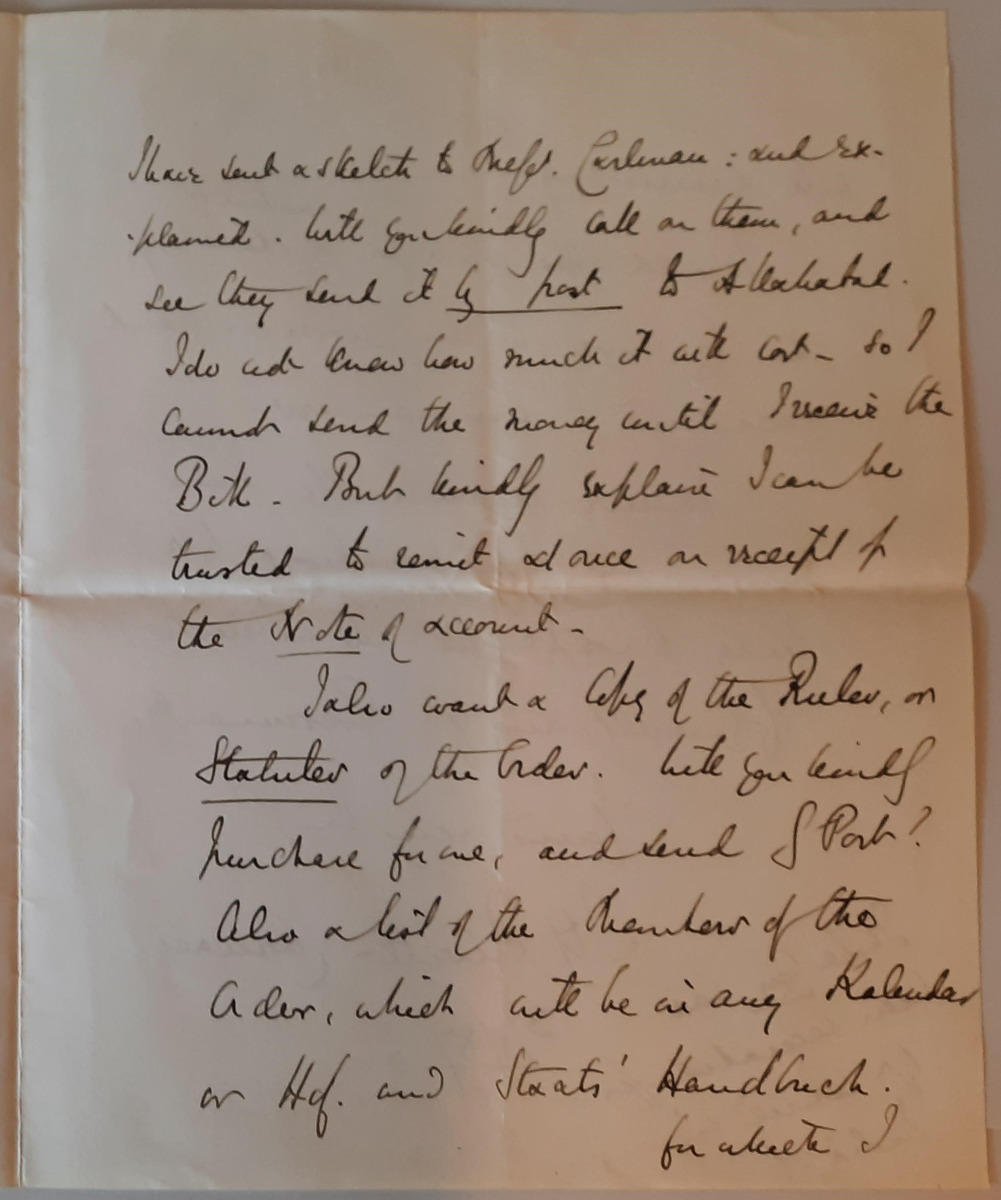 I have sent a sketch to Messrs. : and ex-
plained. Will you kindly call on them, and
see they send it by post to Allahabad.
I do not know how much it will cost - so I
cannot send the money until I receive the
Bill - But kindly explain I can be
trusted to remit at once on receipt of
the Note of account -
I also want a Copy of the Rules, or
Statutes of the Order. Will you kindly
purchase for me, and send by Post?
Also a list of the Members of the
Order, which will be in any Kalendar
or Hof. und Staats' Handbuch.
for which I